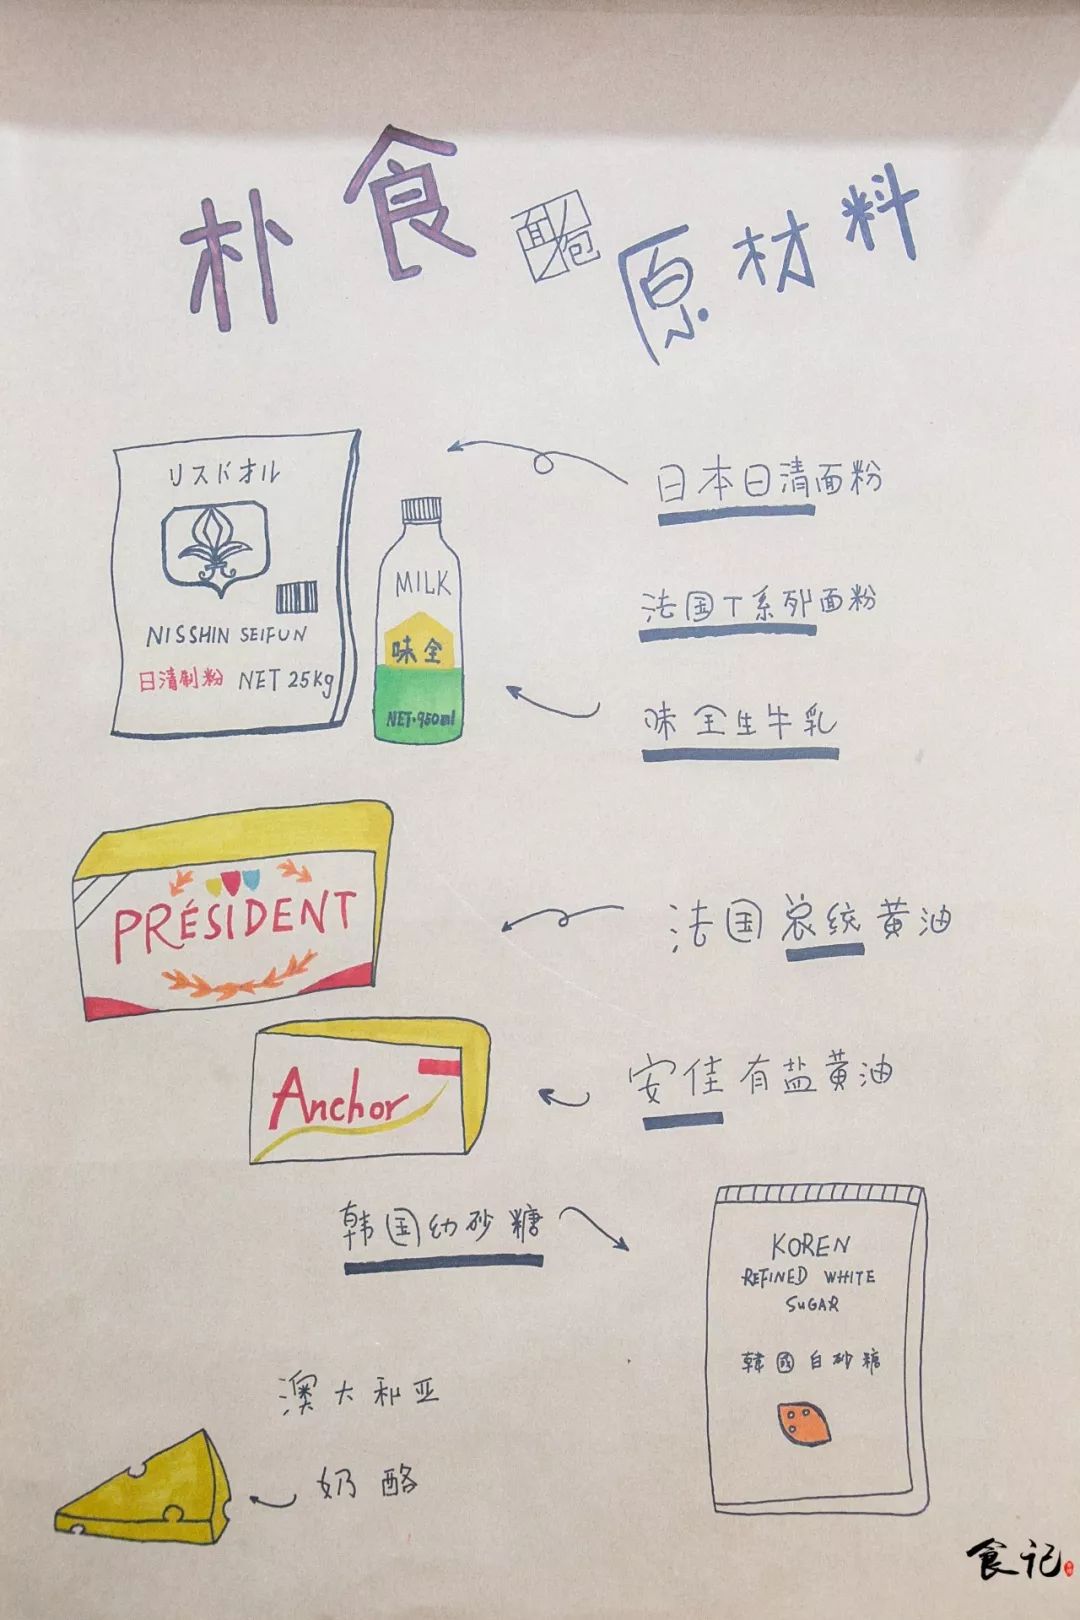 朴食面包原材料
リスドオル
NISSHIN SEIFUN
日清制粉 NET 25Kg
MILK
味全
NET·950ml
日本日清面粉
法国T系列面粉
味全生牛乳
PRÉSIDENT
法国总统黄油
Anchor
安佳有盐黄油
韩国幼砂糖
KOREN
REFINED WHITE
SUGAR
韓國白砂糖
澳大利亚
奶酪
食记